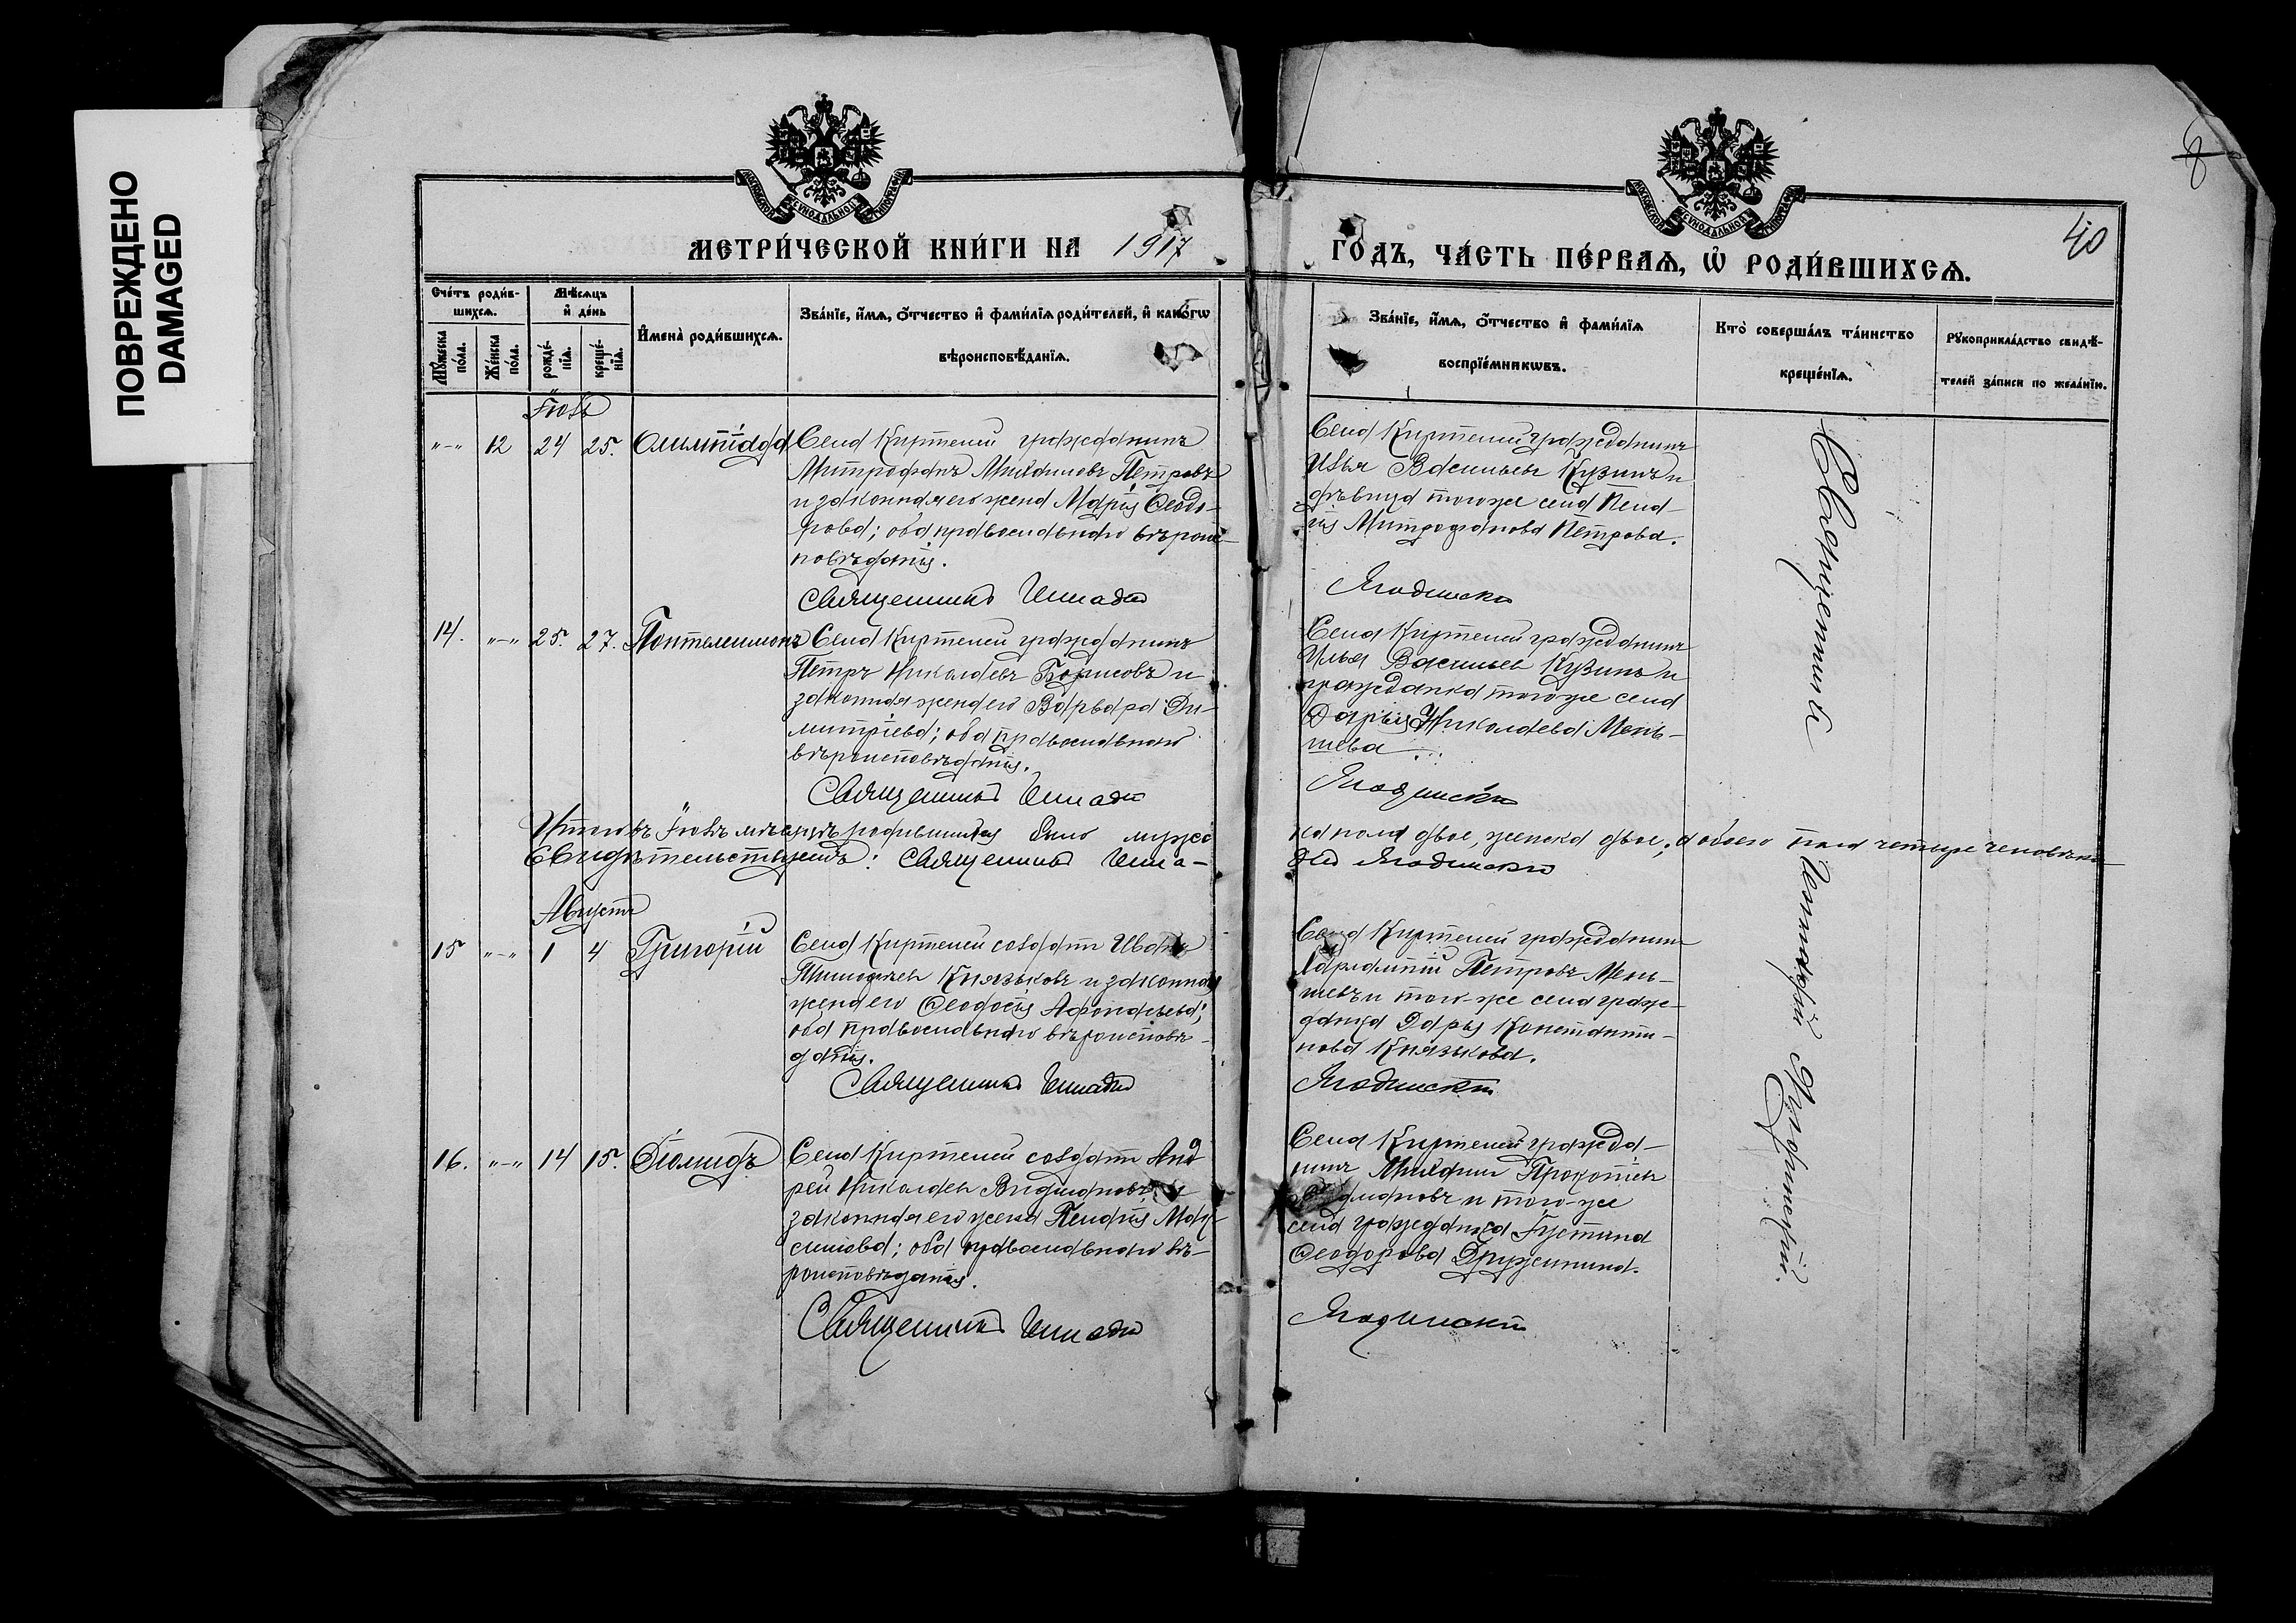 ПОВРЕЖДЕНО
DAMAGED
МЕТРИ́ЧЕСКОЙ КНИ́ГИ НА 1917
ГОДЪ, ЧА́СТЬ ПЕ́РВАѦ, Ѡ҆ РОДИ́ВШИХСѦ.
40
Сче́тъ роди́в-
шихсѧ.
Мѣ́сѧцъ
и҆ де́нь
Мꙋ́жеска
по́ла.
Же́нска
по́ла.
рожде́-
нїѧ.
креще́-
нїѧ.
И҆мена̀ роди́вшихсѧ.
Зва́нїе, и҆́мѧ, ѻ҆́тчество и҆ фами́лїѧ роди́телей, и҆ како́гѡ
вѣроисповѣ́данїѧ.
Зва́нїе, и҆́мѧ, ѻ҆́тчество и҆ фами́лїѧ
воспрїе́мникѡвъ.
Кто̀ соверша́лъ та́инство
креще́нїѧ.
Рꙋкоприкла́дство свидѣ́-
телей за́писи по жела́нїю.
Іюль
"-" 12 24 25. Олимпіада
Села Киртелей гражданинъ
Митрофанъ Михаиловъ Петровъ
и законная его жена Марія Ѳеодо-
рова; оба православнаго вѣроис-
повѣданія.
Священникъ Геннадій
Села Киртелей гражданинъ
Илья Васильевъ Кузинъ и
дѣвица того же села Пела-
гія Митрофанова Петрова.
Ягодинскій
14. "-" 25. 27. Пантелеимонъ
Села Киртелей гражданинъ
Петръ Николаевъ Борисовъ и
законная жена его Варвара Ди-
митріева; оба православнаго
вѣроисповѣданія.
Священникъ Геннадій
Села Киртелей гражданинъ
Илья Васильевъ Кузинъ и
гражданка того же села
Дарья Николаева Мень-
шева
Ягодинскій
Итого въ Іюлѣ мѣсяцѣ родившихся было мужс-
ка пола двое, женска двое; а обоего пола четыре человѣка
Свидѣтельствуемъ: Священникъ Генна-
дій Ягодинскій
Августъ
15 "-" 1 4 Григорій
Села Киртелей солдатъ Иванъ
Тимофѣевъ Князьковъ и законная
жена его Ѳеодосія Афонасьева;
оба православнаго вѣроисповѣ-
данія.
Священникъ Геннадій
Села Киртелей гражданинъ
Харлампій Петровъ Мень-
шевъ и того-же села граж-
данка Дарья Константи-
нова Князькова.
Ягодинскій
16. "-" 14 15. Діомидъ
Села Киртелей солдатъ Анд-
рей Николаевъ Видмановъ и
законная его жена Пелагія Мак-
симова; оба православнаго вѣ-
роисповѣданія.
Священникъ Геннадій
Села Киртелей гражда-
нинъ Михаилъ Прокопіевъ
Видмановъ и того-же
села гражданка Іустина
Ѳеодорова Дружинина.
Ягодинскій
Священникъ
Геннадій